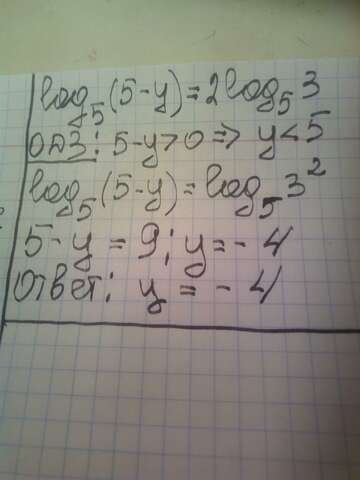 log₅(5-y)=2log₅3
ОДЗ: 5-y>0 => y<5
log₅(5-y)=log₅3²
5-y=9; y=-4
Ответ: y=-4